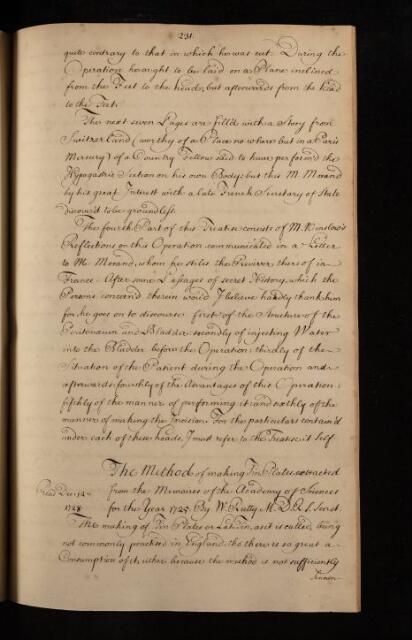 231.
quite contrary to that in which he was cut. During the
Operation he ought to be laid on a Plane inclined
from the Feet to the head, but afterwards from the head
to the Feet.
The next seven Pages are fill'd with a Story from
Switzerland (worthy of a Place no where but in a Paris
Mercury) of a Country Fellow said to have perform'd the
Hypogastric Section on his own Body; but this M. Morand
by his great Interest with a late French Secretary of State
discover'd to be groundless.
The fourth Part of this Treatise consists of M. Winslow's
Reflections on this Operation communicated in a Letter
to Mr. Morand, whom he stiles the Reviver thereof in
France. After some Passages of secret History, which the
Persons concern'd therein would I believe hardly thank him
for, he goes on to discourse first of the Structure of the
Peritonæum and Bladder: secondly of injecting Water
into the Bladder before the Operation: thirdly of the
Situation of the Patient during the Operation and
afterwards: fourthly of the Advantages of this Operation:
fifthly of the manner of performing it: and sixthly of the
manner of making the Incision. For the particulars contain'd
under each of these heads, I must refer to the Treatise it self.
The Method of making Tin Plates extracted
Read Dec. 12
from the Memoires of the Academy of Sciences
1728
for the Year 1725. By W. Rutty M.D. R.S. Secret.
The making of Tin Plates or Lattin, as it is called, being
not commonly practis'd in England, tho' there is so great a
Consumption of it, either because the method is not sufficiently